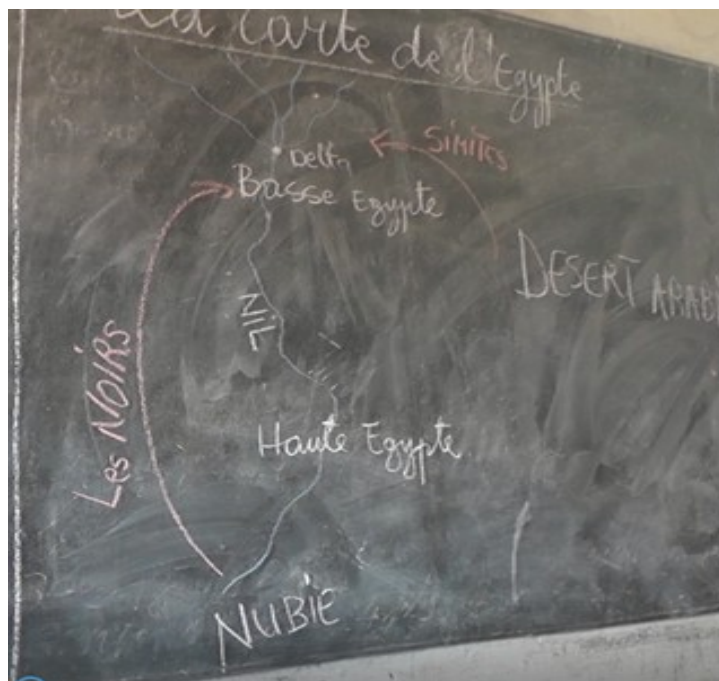 La carte de l'Egypte
SIMITES
Delta
Basse Egypte
DESERT ARAB
NIL
Les NOIRS
Haute Egypte
NUBIE